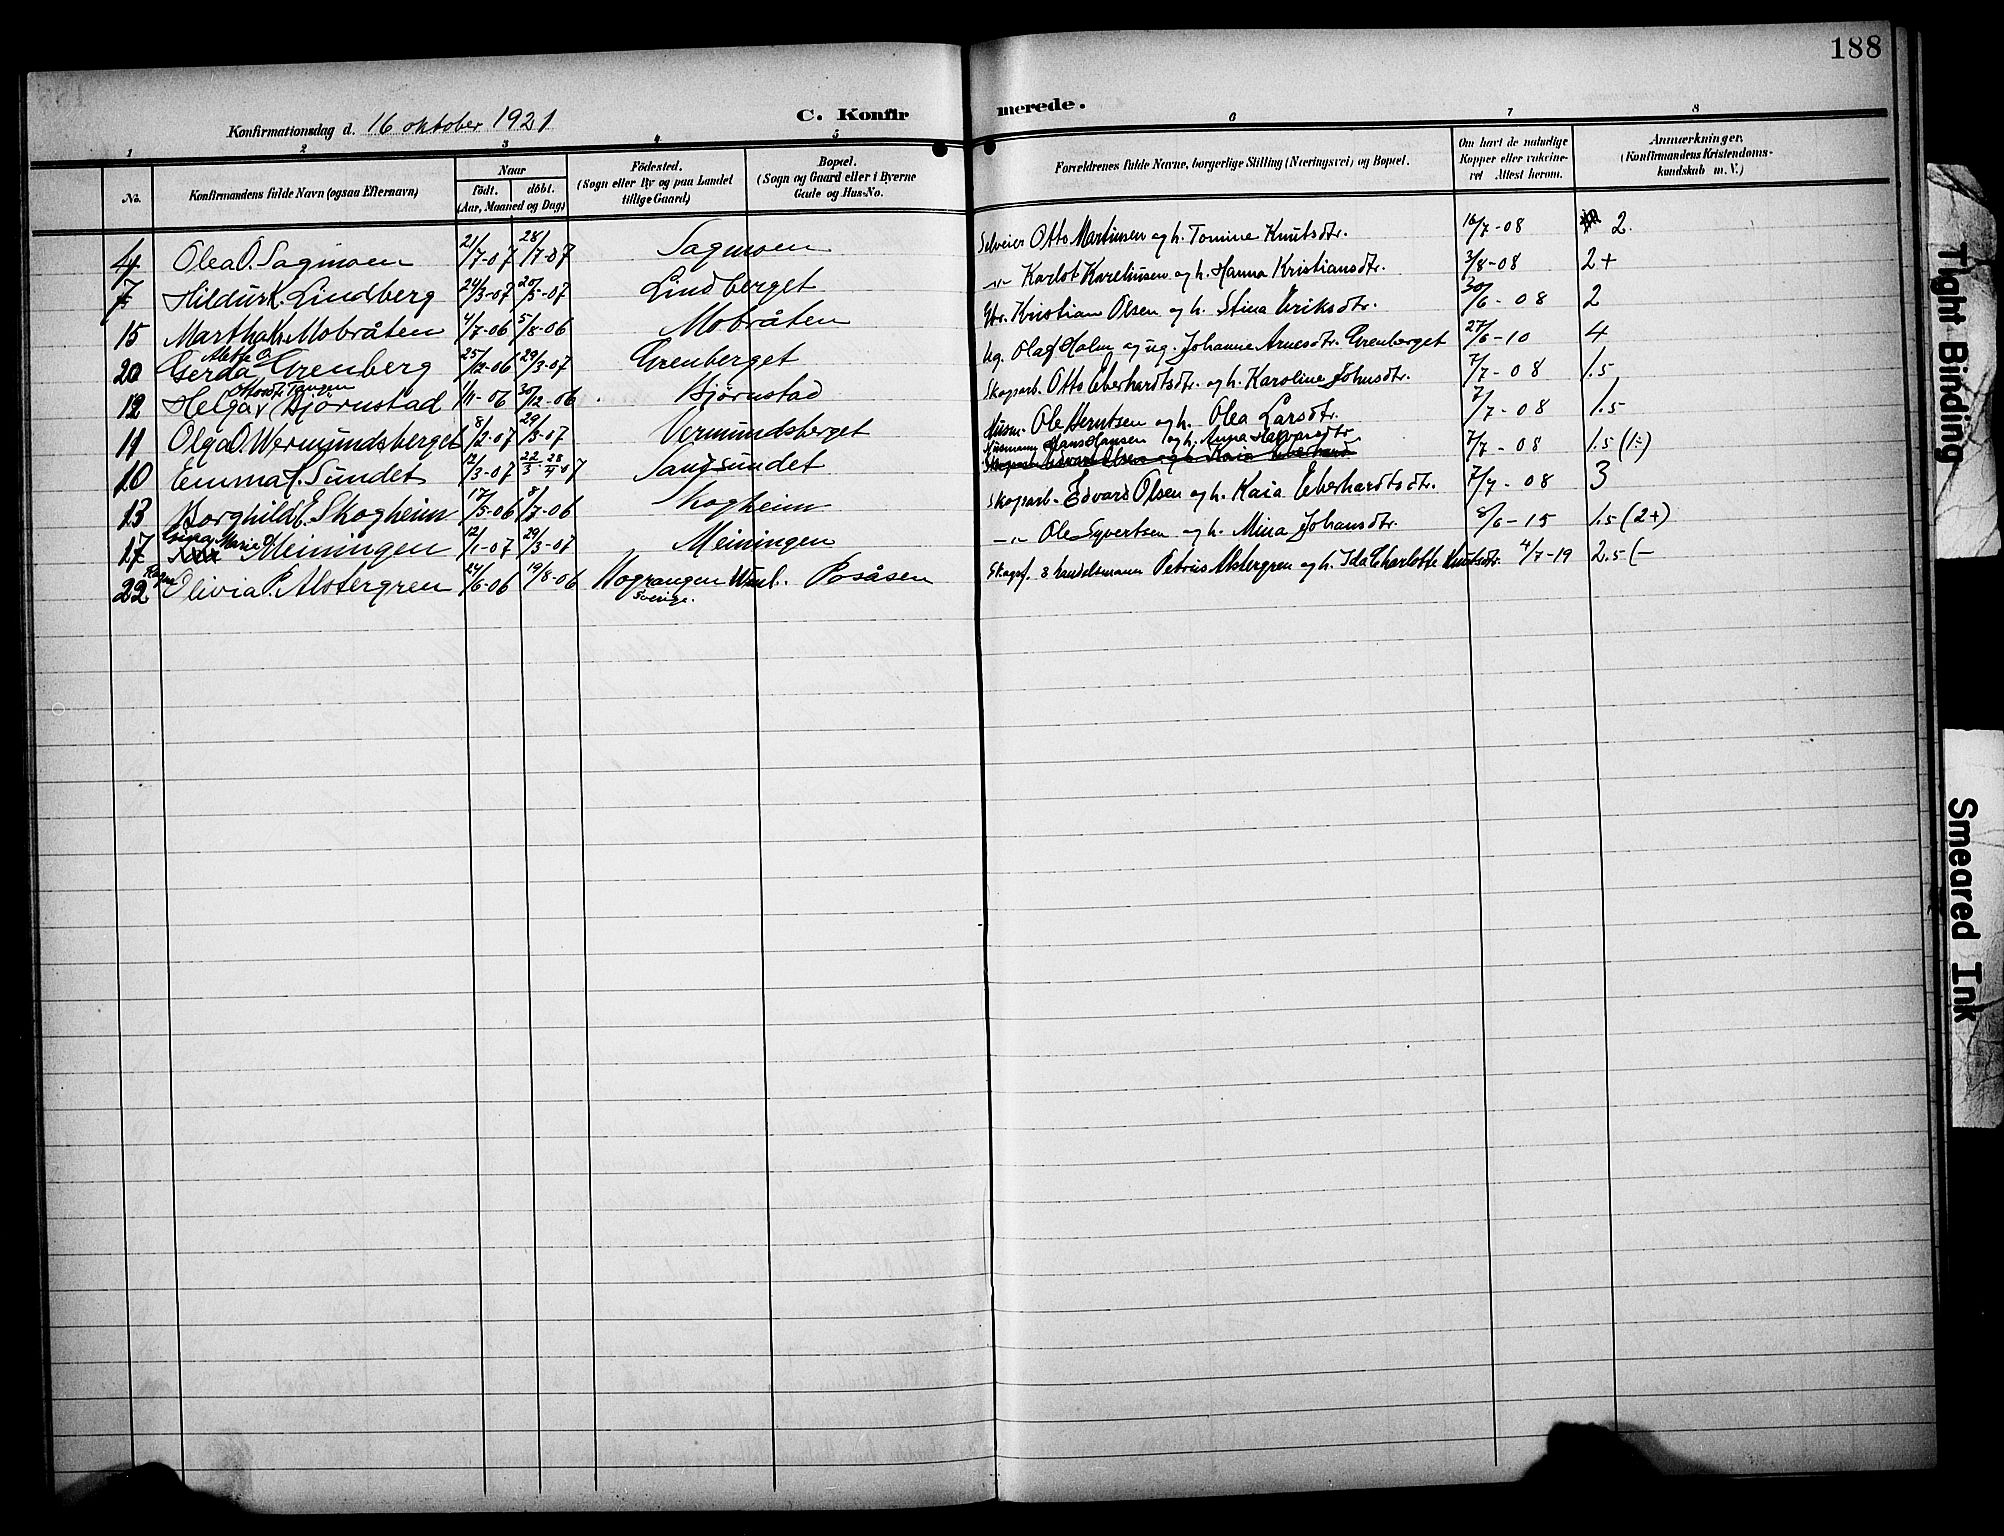 188
Konfirmationsdag d. 16 oktober 1921
C. Konfirmerede.
1 2 3 4 5 6 7 8
No.
Konfirmandens fulde Navn (ogsaa Efternavn)
Naar
födt. döbt.
(Aar, Maaned og Dag)
Födested.
(Sogn eller By og paa Landet
tillige Gaard)
Bopæl.
(Sogn og Gaard eller i Byerne
Gade og Hus-No.
Forældrenes fulde Navne, borgerlige Stilling (Næringsvei) og Bopæl.
Om havt de naturlige
Kopper eller vaksine-
ret Attest herom.
Anmærkninger,
(Konfirmandens Kristendoms-
kundskab m. V.)
4 Olea O. Sagmoen 21/7-07 28/7-07 Sagmoen Selveier Otto Martinsen og h. Tomine Knutsdtr. 16/7-08 2.
7 Hildur K. Lindberg 24/3-07 20/5-07 Lindberget -"- Karlot Karelinsen og h. Hanna Kristiansdtr. 3/8-08 2+
15 Martha K. Mobråten 4/7-06 5/8-06 Mobråten Kristian Olsen og h. Stina Eriksdtr. 30/6-08 2
20 Gerda Grenberg 25/12-06 29/3-07 Grenberget Ug. Olaf Holm og ug. Johanne Arnesdtr. Grenberget 27/6-10 4
12 Helga Bjørnstad 1/11-06 30/12-06 Bjørnstad Skogsarb. Otto Eberhardtsdtr. og h. Karoline Johnsdtr. 7/7-08 1.5
11 Olga O. Wermundsberget 8/2-07 29/3-07 Vermundsberget Husm. Ole Berntsen og h. Olea Larsdtr. 7/7-08 1.5
10 Emma H. Sundet 12/3-07 22/3-28/4-07 Sandsundet Husmann Hans Hansen og h. Anna Halvorsdtr. 7/7-08 1.5 (1-)
13 Borghild E. Skogheim 17/5-06 8/7-06 Skogheim Skogsarb. Edvard Olsen og h. Kaia Eberhardtsdtr. 7/7-08 3
17 Marie O. Meiningen 12/1-07 29/3-07 Meiningen -"- Ole Syvertsen og h. Mina Johansdtr. 8/6-15 1.5 (2+)
22 Olivia P. Alstergren 24/6-06 19/8-06 Posåsen Skogsf. & handelsmann Petrus Alstergren og h. Ida Charlotte Knutsdtr. 4/7-19 2.5 (-
Sverige.
Tight Binding
Smeared Ink